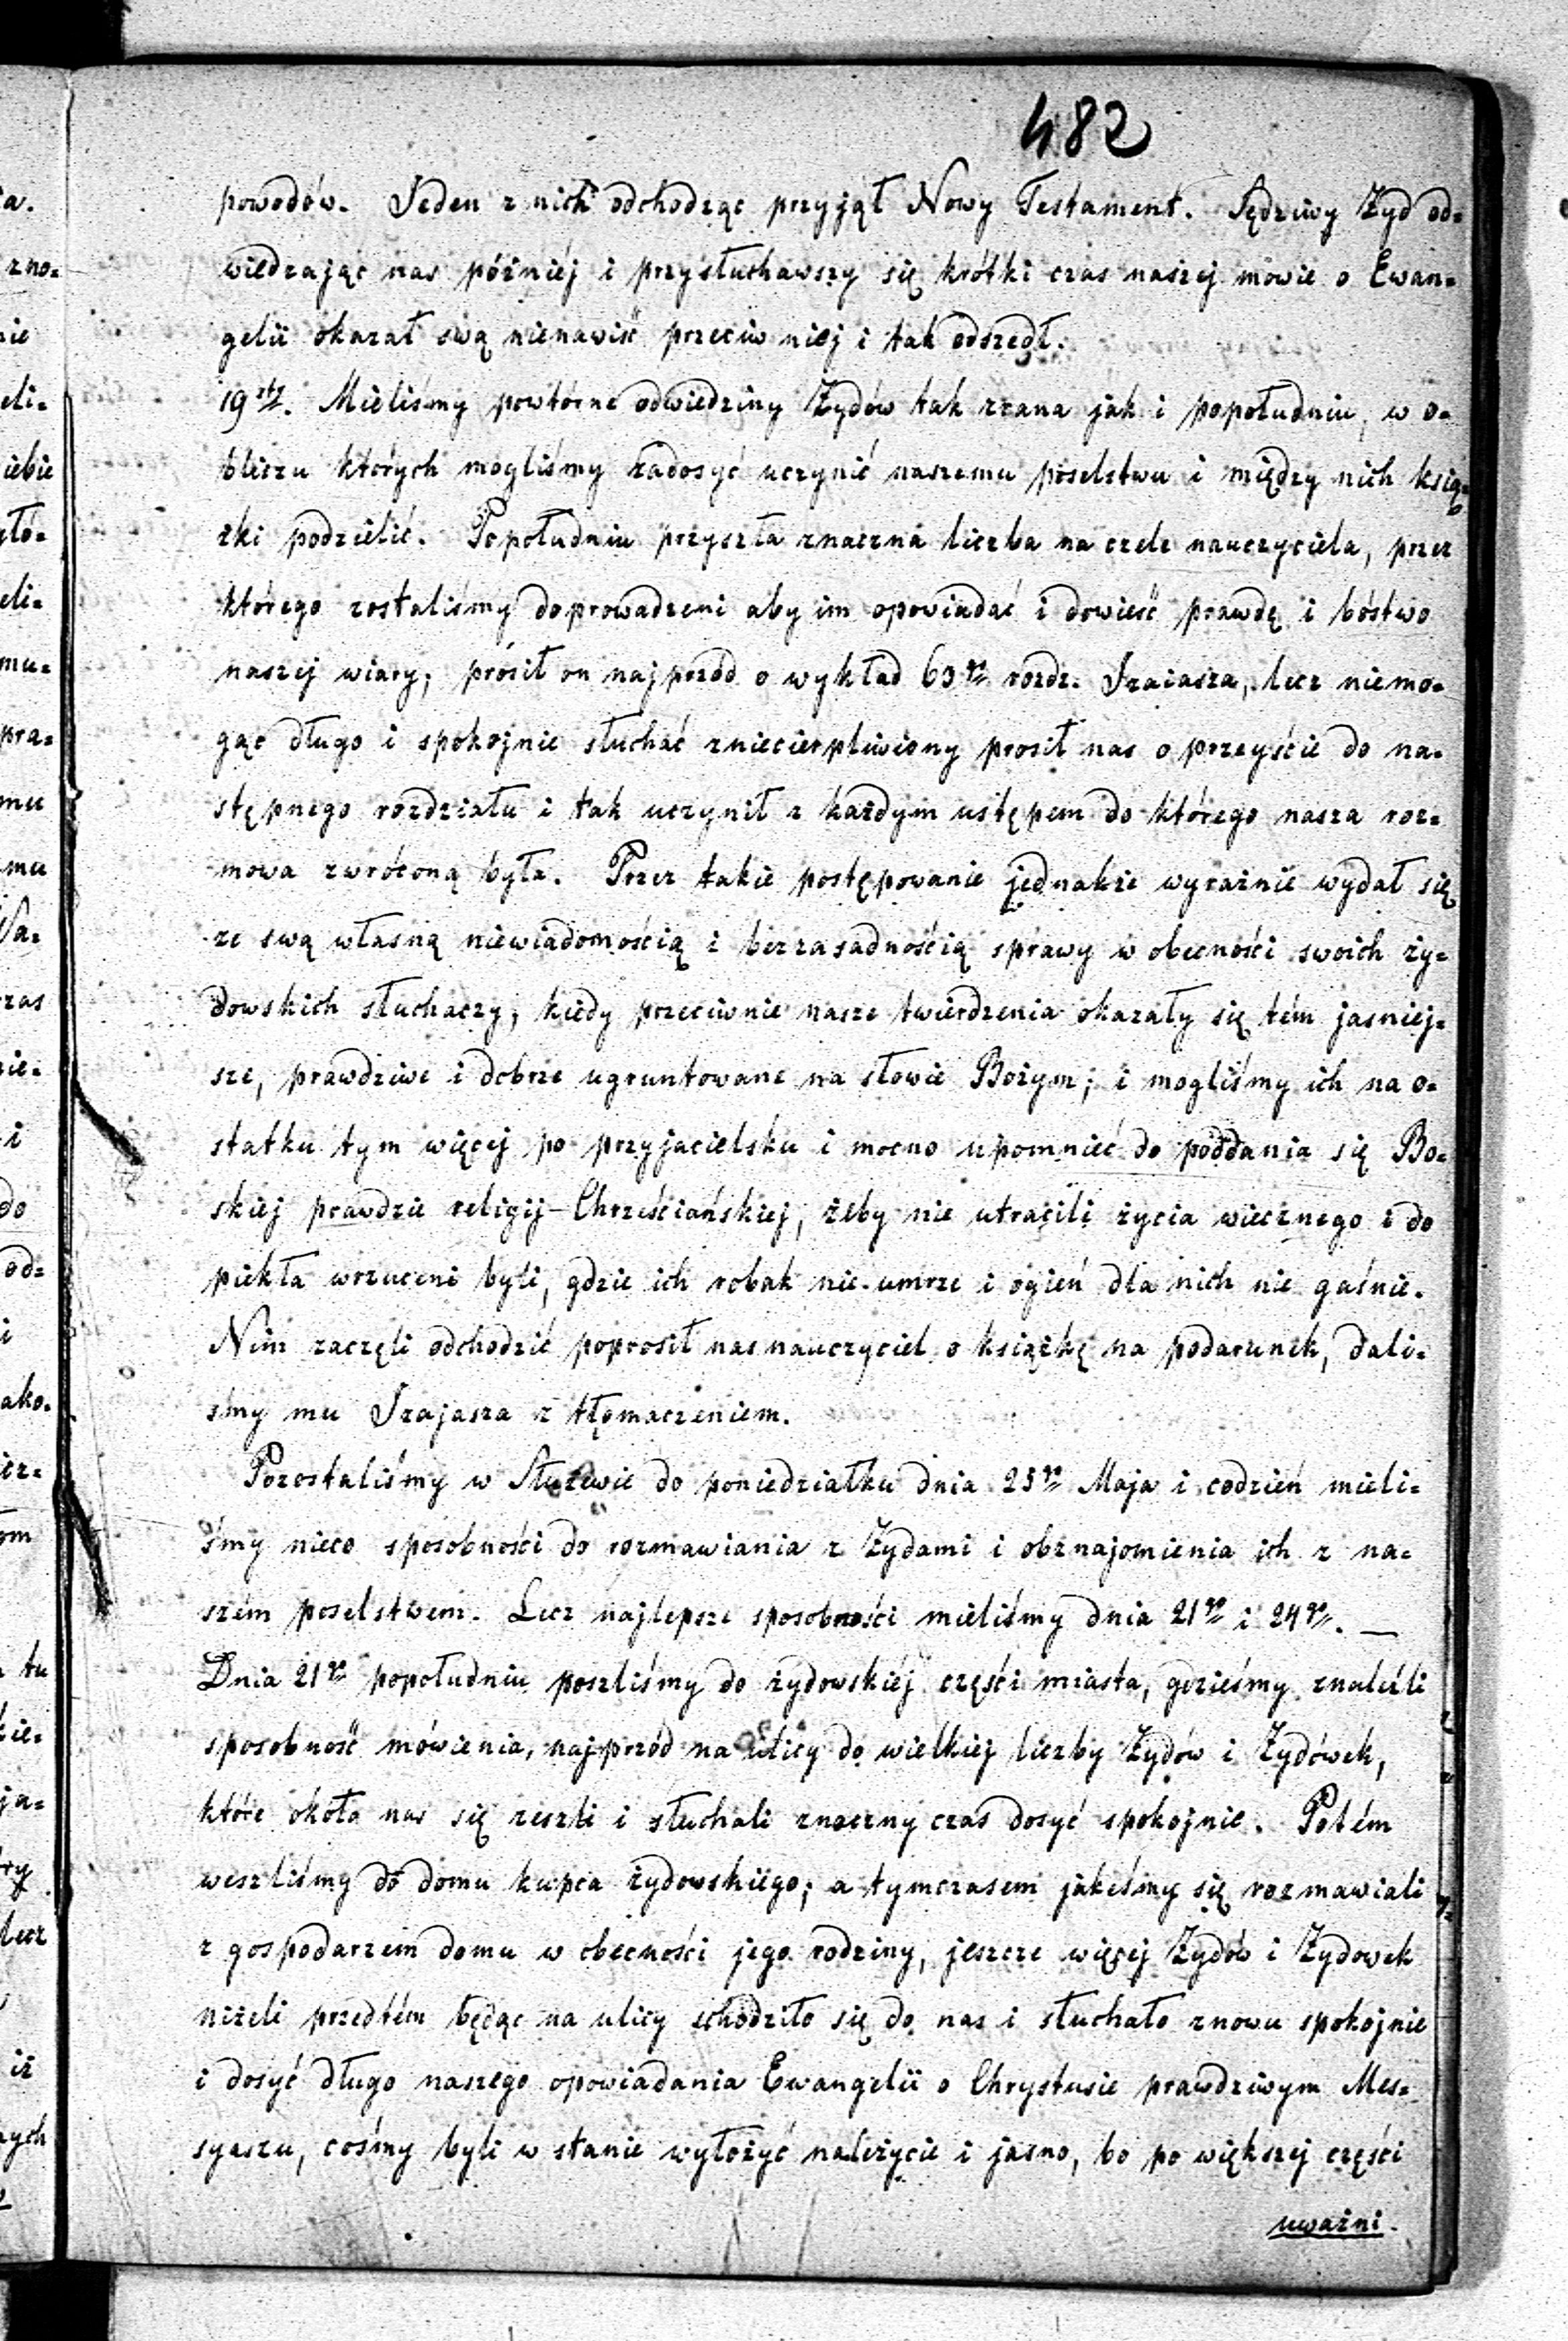 482
powodów. Jeden z nich odchodząc przyjął Nowy Testament. Sędziwy Żyd od=
wiedzając nas później i przysłuchawszy się krótki czas naszej mowie o Ewan=
gelii okazał swą nienawiść przeciw niej i tak odszedł.
19sty. Mieliśmy powtórne odwiedziny Żydów tak zrana jak i popołudniu, w o=
bliczu których mogliśmy zadosyć uczynić naszemu poselstwu i między nich ksią=
żki podzielić. Popołudniu przyszła znaczna liczba na czele nauczyciela, przez
którego zostaliśmy doprowadzeni aby im opowiadać i dowieść prawdę i bóstwo
naszej wiary; prósił on najprzód o wykład 63go rozdz. Izaiasza, lecz niemo=
gąc długo i spokojnie słuchać zniecierpliwiony prosił nas o przeyście do na=
stępnego rozdziału i tak uczynił z każdym ustępem do którego nasza roz=
mowa zwróconą była. Przez takie postępowanie jednakże wyraźnie wydał się
ze swą własną niewiadomością i bezzasadnością sprawy w obecności swoich ży=
dowskich słuchaczy, kiedy przeciwnie nasze twierdzenia okazały się tém jasniej=
sze, prawdziwe i dobrze ugruntowane na słowie Bożym; i mogliśmy ich na o=
statku tym więcej po przyjacielsku i mocno upomnieć do poddania się Bo=
skiej prawdzie religij Chrześciańskiej, żeby nie utracili życia wiecznego i do
piekła wrzuceni byli, gdzie ich robak nie umrze i ogień dla nich nie gaśnie.
Nim zaczęli odchodzić poprosił nas nauczyciel o książkę na podarunek, dali=
śmy mu Izajasza z tłomaczeniem.
Pozostaliśmy w Służewie do poniedziałku dnia 25go Maja i codzień mieli=
śmy nieco sposobności do rozmawiania z Żydami i obznajomienia ich z na=
szém poselstwem. Lecz najlepsze sposobności mieliśmy dnia 21go i 24go. —
Dnia 21go popołudniu poszliśmy do żydowskiéj części miasta, gdzieśmy znaleźli
sposobność mówienia, najprzód na ulicy do wielkiej liczby Żydów i Żydówek,
które około nas się zeszli i słuchali znaczny czas dosyć spokojnie. Potém
weszliśmy do domu kupca żydowskiego; a tymczasem jakeśmy się rozmawiali
z gospodarzem domu w obecności jego rodziny, jeszcze więcej Żydów i Żydowek
niżeli przedtém będąc na ulicy schodziło się do nas i słuchało znowu spokojnie
i dosyć długo naszego opowiadania Ewangelii o Chrystusie prawdziwym Mes=
syaszu, cośmy byli w stanie wyłożyć należycie i jasno, bo po większej części
uważni.